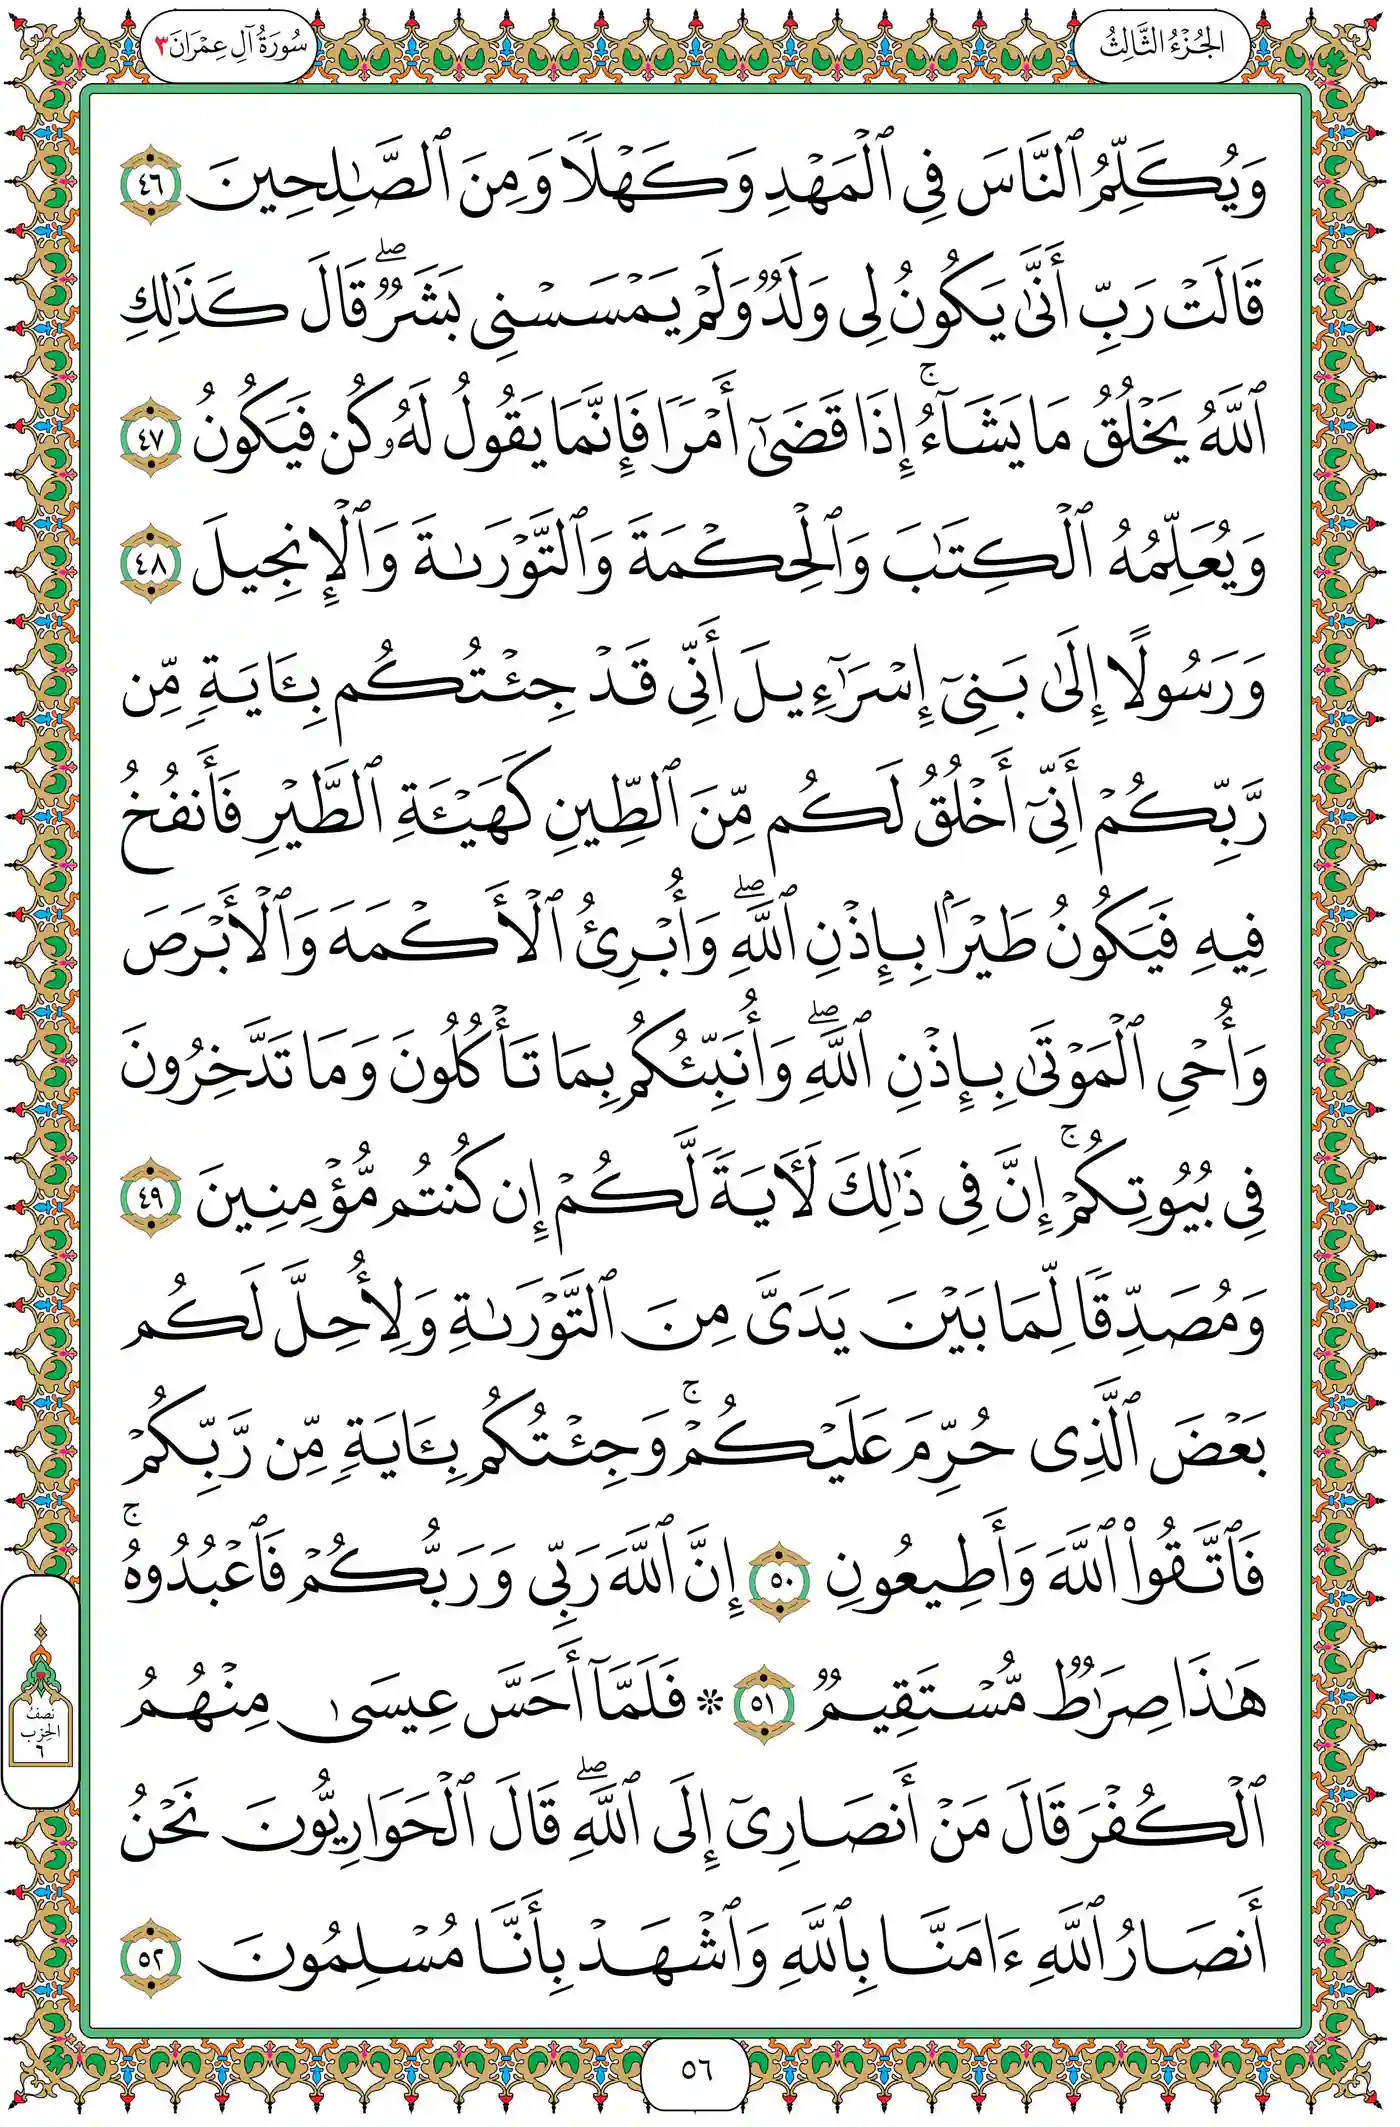 الجُزْءُ الثَّالِثُ
سُورَةُ آلِ عِمْرَانَ ٣
وَيُكَلِّمُ ٱلنَّاسَ فِى ٱلْمَهْدِ وَكَهْلًا وَمِنَ ٱلصَّـٰلِحِينَ ٤٦
قَالَتْ رَبِّ أَنَّىٰ يَكُونُ لِى وَلَدٌ وَلَمْ يَمْسَسْنِى بَشَرٌ ۖ قَالَ كَذَٰلِكِ
ٱللَّهُ يَخْلُقُ مَا يَشَآءُ ۚ إِذَا قَضَىٰٓ أَمْرًا فَإِنَّمَا يَقُولُ لَهُۥ كُن فَيَكُونُ ٤٧
وَيُعَلِّمُهُ ٱلْكِتَـٰبَ وَٱلْحِكْمَةَ وَٱلتَّوْرَىٰةَ وَٱلْإِنجِيلَ ٤٨
وَرَسُولًا إِلَىٰ بَنِىٓ إِسْرَٰٓءِيلَ أَنِّى قَدْ جِئْتُكُم بِـَٔايَةٍ مِّن
رَّبِّكُمْ أَنِّىٓ أَخْلُقُ لَكُم مِّنَ ٱلطِّينِ كَهَيْـَٔةِ ٱلطَّيْرِ فَأَنفُخُ
فِيهِ فَيَكُونُ طَيْرًۢا بِإِذْنِ ٱللَّهِ ۖ وَأُبْرِئُ ٱلْأَكْمَهَ وَٱلْأَبْرَصَ
وَأُحْىِ ٱلْمَوْتَىٰ بِإِذْنِ ٱللَّهِ ۖ وَأُنَبِّئُكُم بِمَا تَأْكُلُونَ وَمَا تَدَّخِرُونَ
فِى بُيُوتِكُمْ ۚ إِنَّ فِى ذَٰلِكَ لَـَٔايَةً لَّكُمْ إِن كُنتُم مُّؤْمِنِينَ ٤٩
وَمُصَدِّقًا لِّمَا بَيْنَ يَدَىَّ مِنَ ٱلتَّوْرَىٰةِ وَلِأُحِلَّ لَكُم
بَعْضَ ٱلَّذِى حُرِّمَ عَلَيْكُمْ ۚ وَجِئْتُكُم بِـَٔايَةٍ مِّن رَّبِّكُمْ
فَٱتَّقُوا۟ ٱللَّهَ وَأَطِيعُونِ ٥٠ إِنَّ ٱللَّهَ رَبِّى وَرَبُّكُمْ فَٱعْبُدُوهُ ۚ
هَـٰذَا صِرَٰطٌ مُّسْتَقِيمٌ ٥١ * فَلَمَّآ أَحَسَّ عِيسَىٰ مِنْهُمُ
ٱلْكُفْرَ قَالَ مَنْ أَنصَارِىٓ إِلَى ٱللَّهِ ۖ قَالَ ٱلْحَوَارِيُّونَ نَحْنُ
أَنصَارُ ٱللَّهِ ءَامَنَّا بِٱللَّهِ وَٱشْهَدْ بِأَنَّا مُسْلِمُونَ ٥٢
نصف
الحزب
٦
٥٦